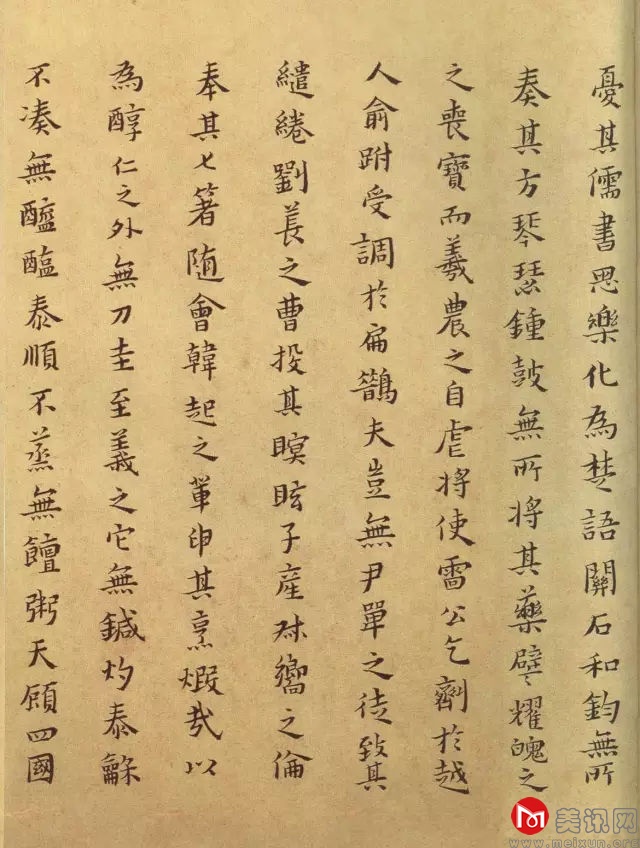 憂其儒書思樂化為楚語關石和鈞無所
奏其方琴瑟鍾鼓無所將其藥譬耀魄之
之喪寶而羲農之自虐將使雷公乞劑於越
人俞跗受調於扁鵲夫豈無尹單之徒致其
繾綣劉萇之曹投其瞑眩子產叔嚮之倫
奉其匕箸隨會韓起之輩申其烹煆哉以
為醇仁之外無刀圭至義之它無鍼灼泰龢
不凑無醯醢泰順不蒸無饘粥天顧四國
美讯网
www.meixun.org